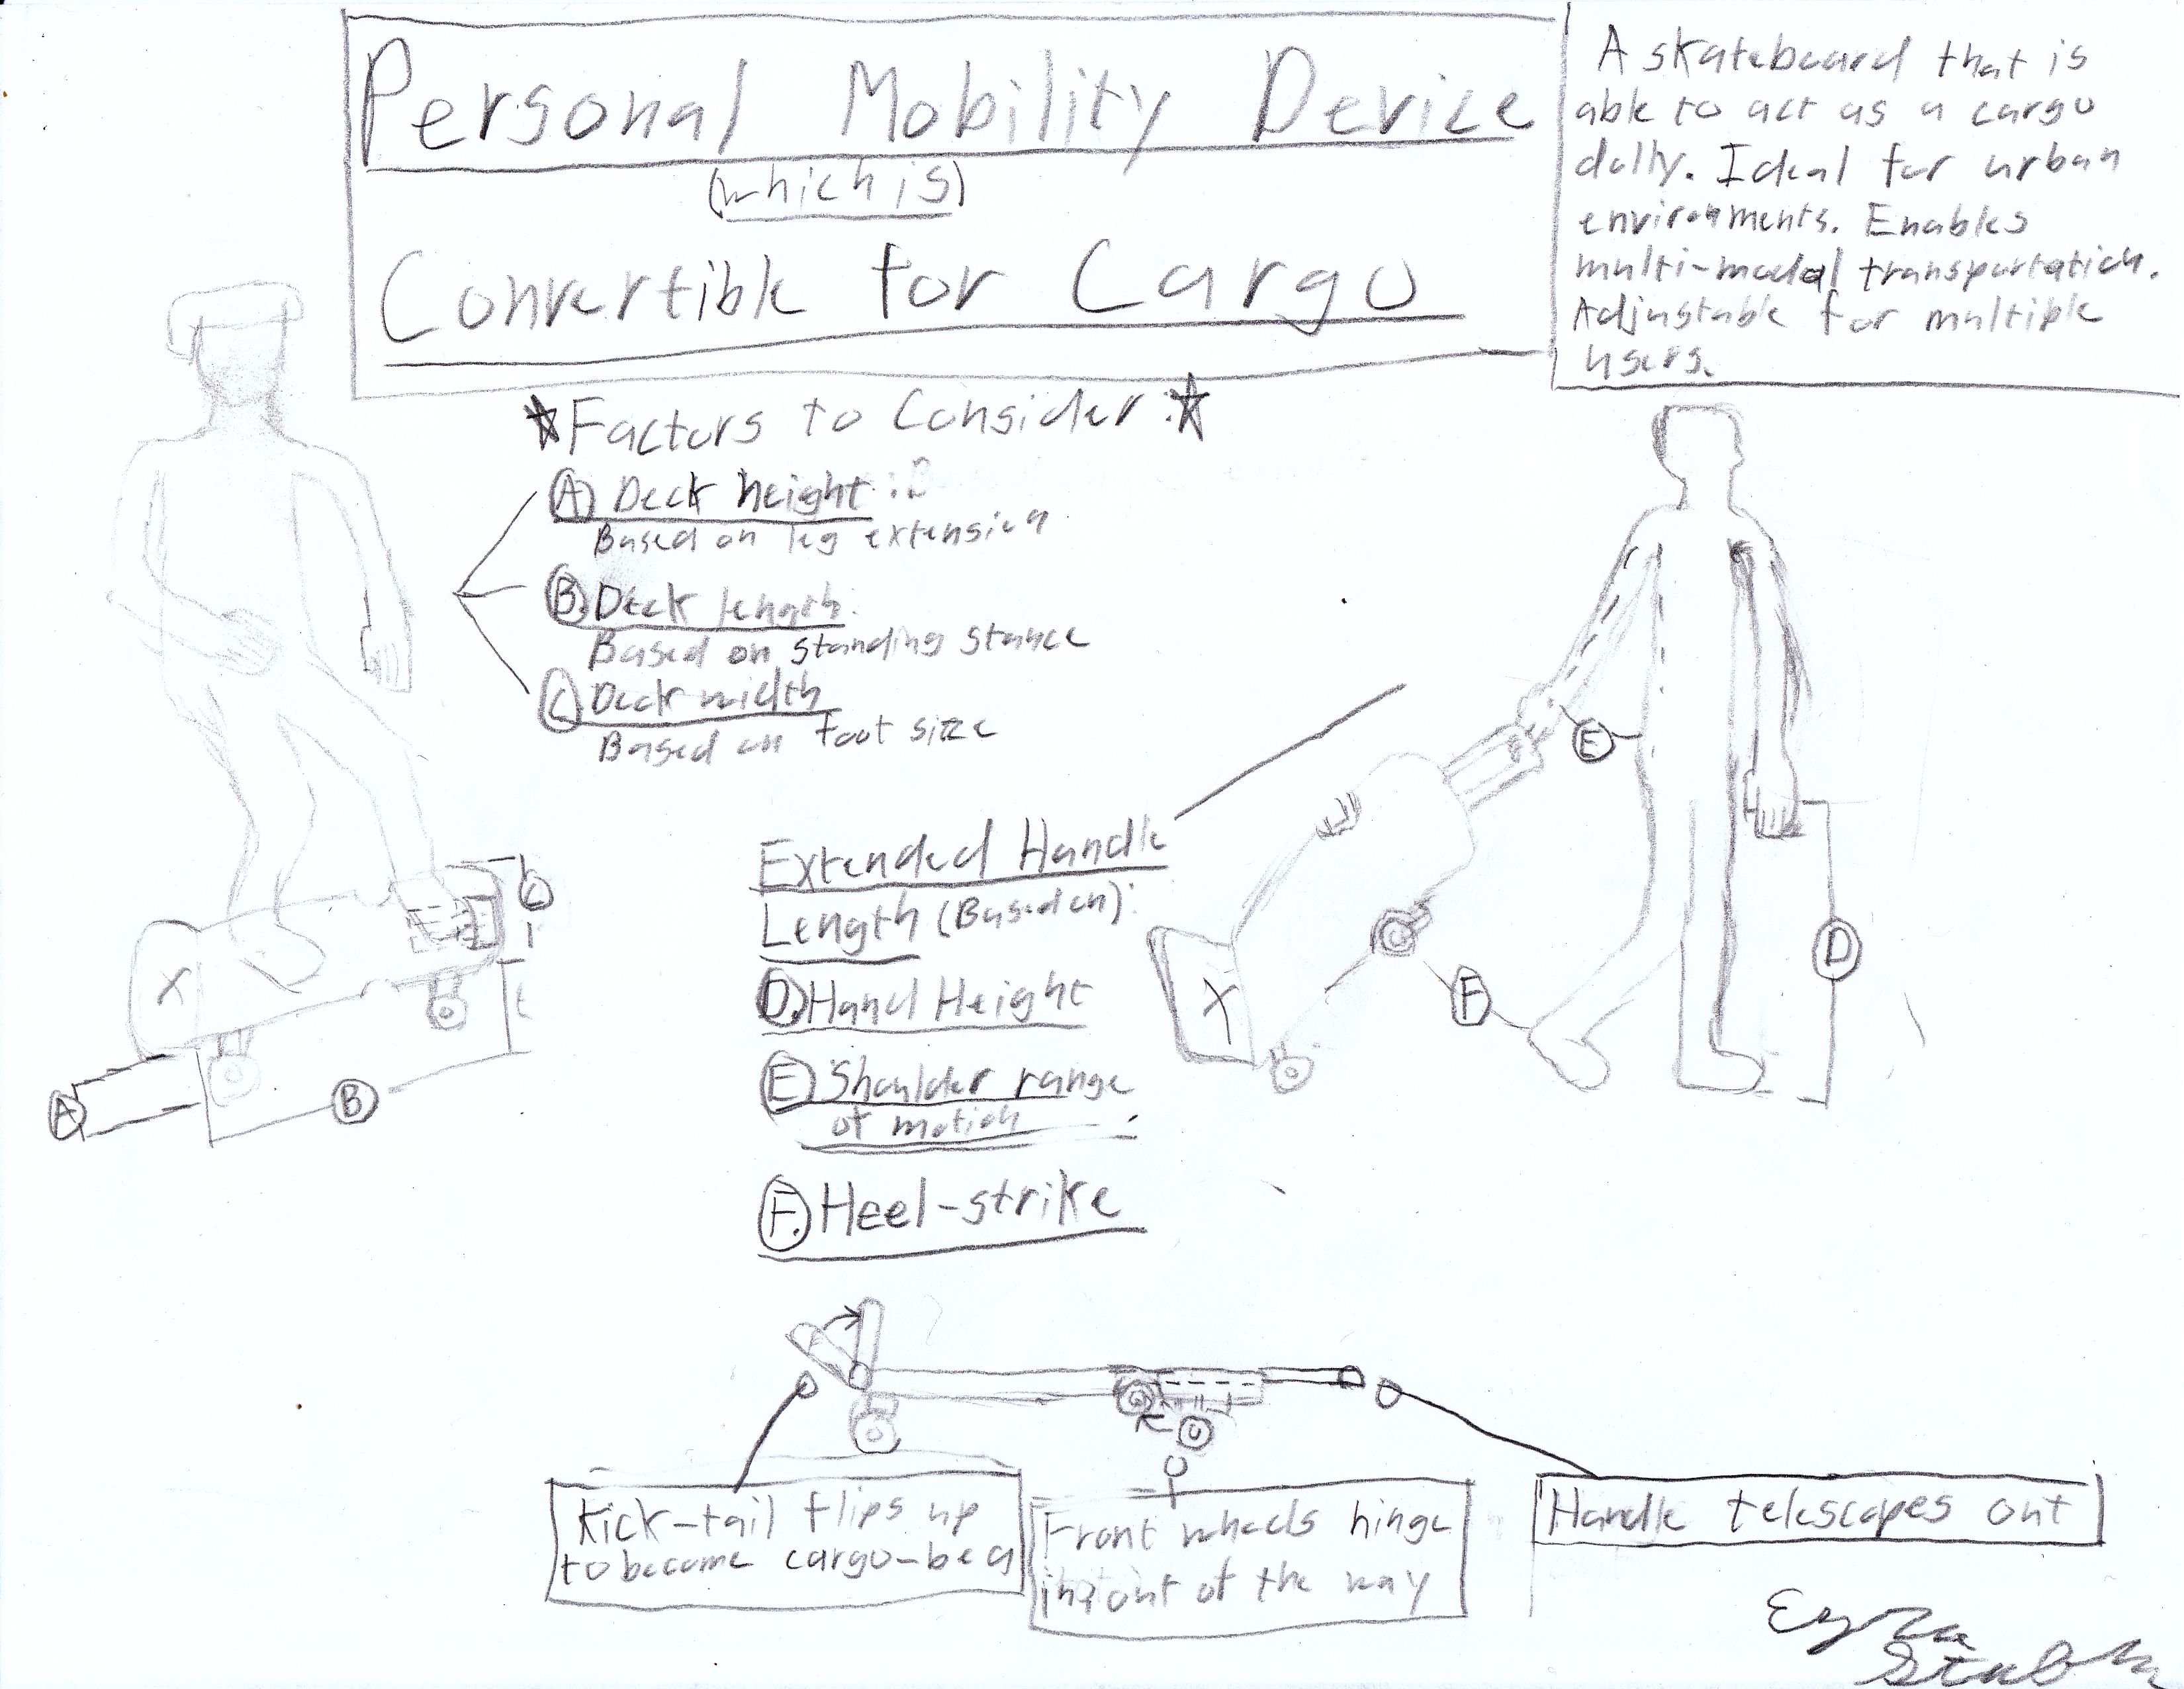 Personal Mobility Device
(which is)
Convertible for Cargo
A skateboard that is
able to act as a cargo
dolly. Ideal for urban
environments. Enables
multi-modal transportation.
Adjustable for multiple
users.
Factors to Consider:
A Deck height:
Based on leg extension
B. Deck length:
Based on standing stance
C. Deck width
Based on foot size
C
A
B
X
Extended Handle
Length (Based on):
D. Hand Height
E Shoulder range
of motion
F. Heel-strike
E
D
F
X
Kick-tail flips up
to become cargo-bed
Front wheels hinge
in, out of the way
Handle telescopes out